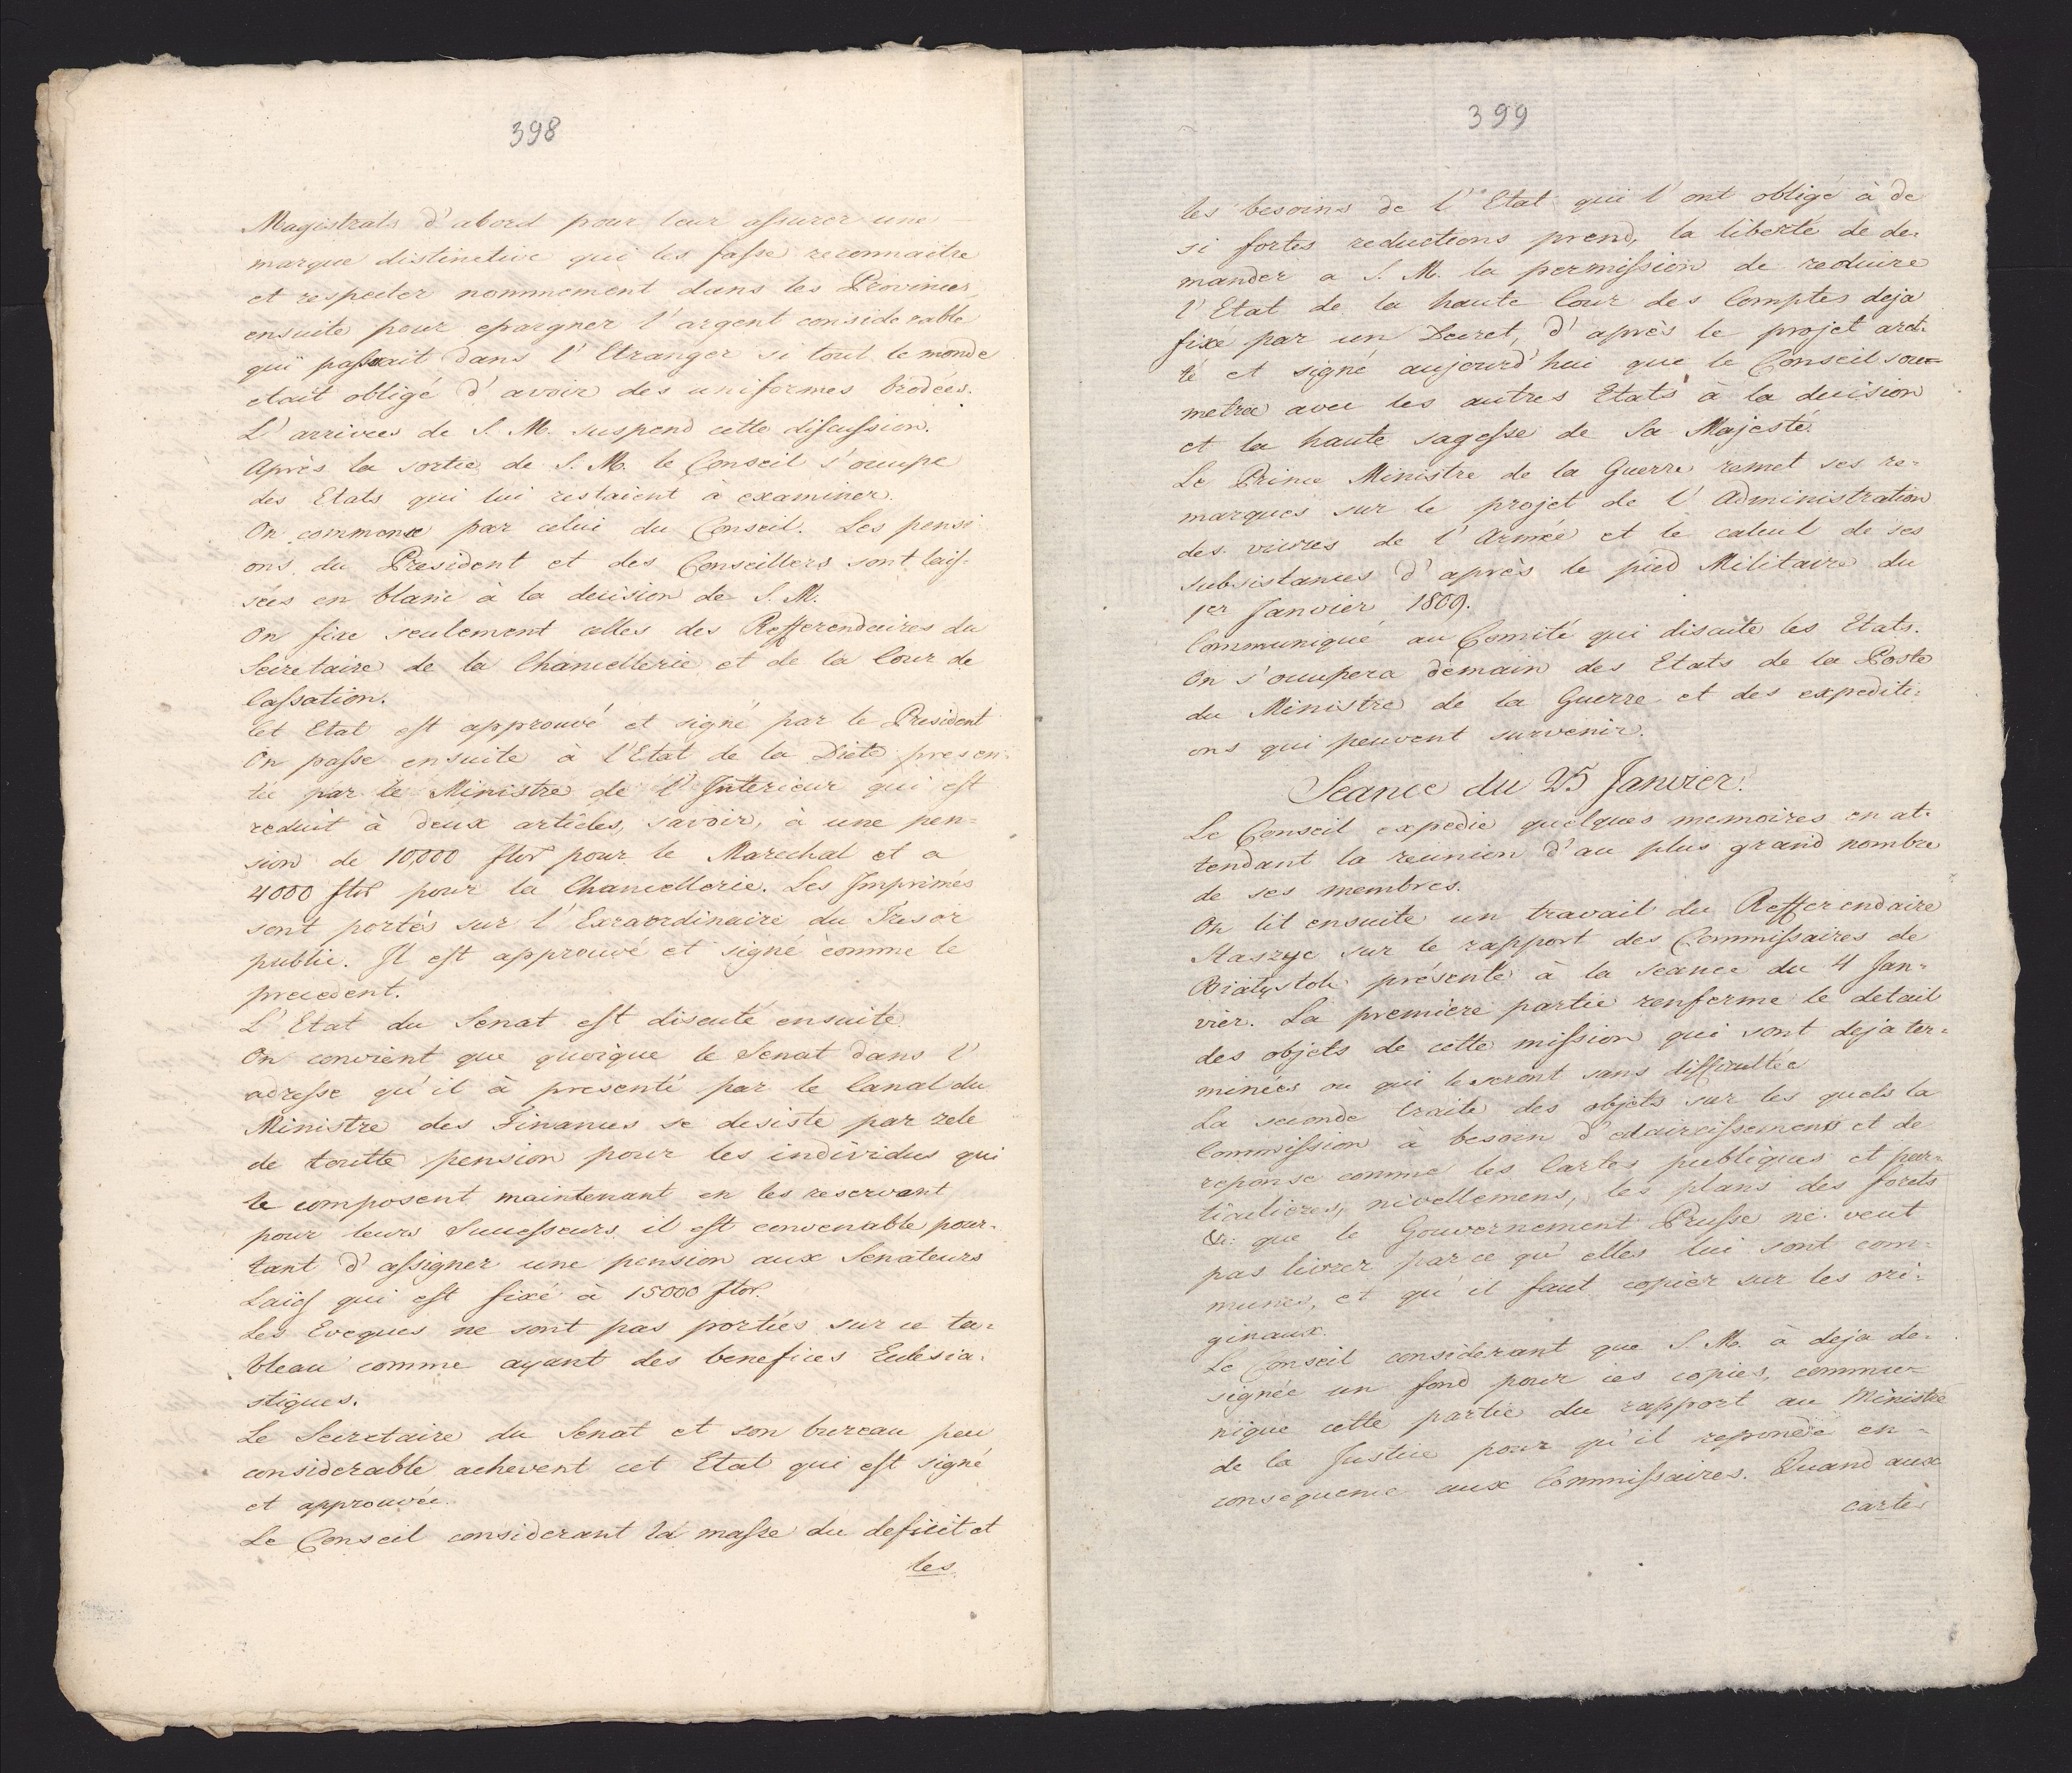 398
Magistrats d'abord pour leur assurer une
marque distinctive qui les fasse reconnaitre
et respecter nommement dans les Provinces,
ensuite pour epargner l'argent considerable
qui passerait dans l'Etranger si tout le monde
etait obligé d'avoir des uniformes brodées.
L'arrivées de S. M. suspend cette discussion.
Après la sortie de S. M. le Conseil s'occupe
des Etats qui lui restaient à examiner.
On commence par celui du Conseil. Les pensi
ons du President et des Conseillers sont lais-
sées en blanc à la decision de S. M.
On fixe seulement celles des Refferendaires du
Secretaire de la Chancellerie et de la Cour de
Cassation.
Cet Etat est approuvé et signé par le President
On passe ensuite à l'Etat de la Diete presen-
té par le Ministre de l'Interieur qui est
reduit à deux articles, savoir, à une pen=
sion de 10,000 flor pour le Marechal et a
4000 flor pour la Chancellerie. Les Imprimés
sont portés sur l'Exraordinaire du Trésor
public. Il est approuvé et signé comme le
precedent.
L'Etat du Senat est discuté ensuite
On convient que quoique le Senat dans l'
adresse qu'il à presenté par le Canal du
Ministre des Finances se desiste par zele
de toutte pension pour les individus qui
le composent maintenant en les reservant
pour leurs Successeurs il est convenable pour-
tant d'assigner une pension aux Senateurs
Laics qui est fixé à 15000 flor.
Les Eveques ne sont pas portées sur ce ta-
bleau comme ayant des benefices Eclesia-
stiques.
Le Secretaire du Senat et son bureau peu
considerable achevent cet Etat qui est signé
et approuvée.
Le Conseil considerant la masse du deficit et
les
399
les besoins de l'Etat qui l'ont obligé à de
si fortes reductions prend, la liberté de de-
mander a S. M. la permission de reduire
l'Etat de la haute Cour des Comptes deja
fixe par un Decret, d'après le projet aret-
té et signé aujourd'hui que le Conseil sou=
metra avec les autres Etats à la decision
et la haute sagesse de Sa Majesté.
Le Prince Ministre de la Guerre remet ses re-
marques sur le projet de l'Administration
des vivres de l'Armée et le calcul de ses
subsistances d'après le pied Militaire du
1er Janvier 1809.
Communiqué au Comité qui discute les Etats.
On s'occupera demain des Etats de la Poste
du Ministre de la Guerre et des expediti-
ons qui peuvent survenir.
Seance du 25 Janvier.
Le Conseil expedie quelques memoires en at-
tendant la reunion d'au plus grand nombre
de ses membres.
On lit ensuite un travail du Refferendaire
Staszyc sur le rapport des Commissaires de
Białystok présenté à la seance du 4 Jan-
vier. La première partie renferme le detail
des objets de cette mission qui sont deja ter-
minées ou qui le seront sans difficultée
La seconde traite des objets sur les quels la
Commission à besoin d'eclaircissemens et de
reponse comme les Cartes publiques et par-
ticulieres, nivellemens, les plans des forets
&c: que le Gouvernement Prusse ne veut
pas livrer parce qu'elles lui sont com-
munes, et qu'il faut copier sur les ori-
ginaux.
Le Conseil considerant que S. M. à deja de-
signée un fond pour ces copies, commu-
nique cette partie du rapport au Ministre
de la Justice pour qu'il reponde en-
consequence aux Commissaires. Quand aux
cartes